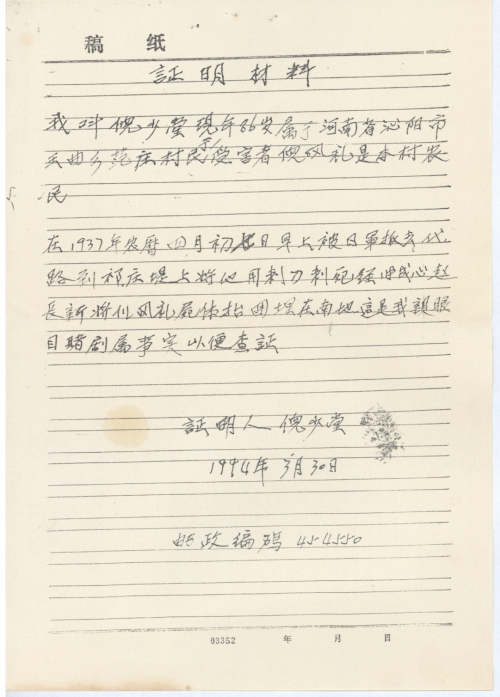 稿 纸
証明材料
我叫倪少堂现年86岁属于河南省沁阳市
王曲乡范庄村民 受害者倪风礼是本村农
民
在1937年农曆四月初七日早上被日军抓去代
路到祁庆堤上将他用刺刀刺死 赵
长新将倪风礼屍体抬回埋在南地这是我親眼
目睹剧属事实以便查証
証明人 倪少堂
1994年3月30日
邮政编码 454550
03352 年 月 日